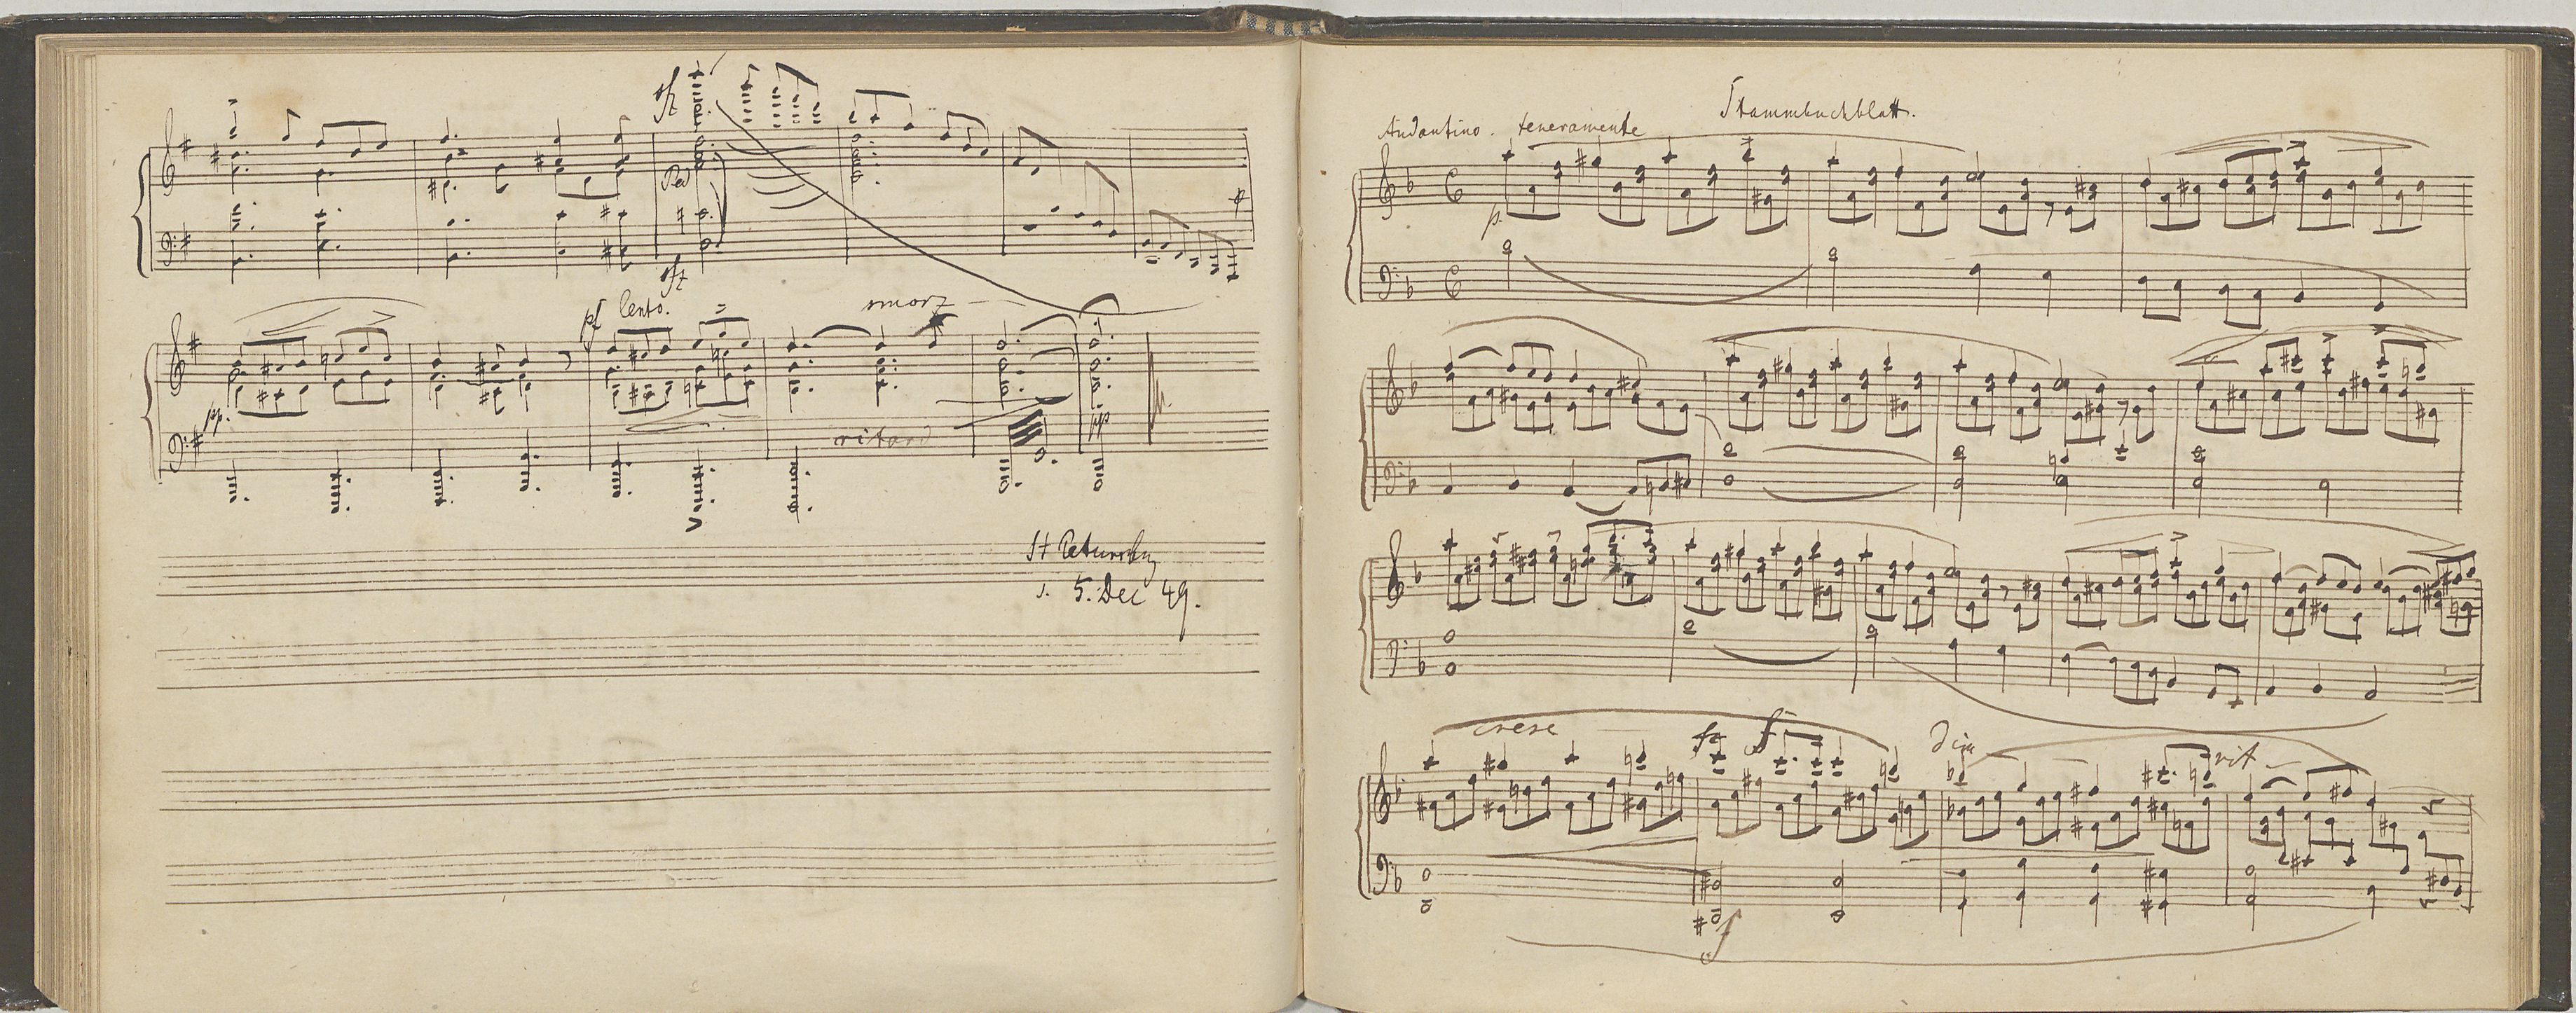 sfz
Ped
p
sfz
pf lento.
smorz
pp.
ritard
ppp
St Petersburg
d. 5. Dec 49.
Stammbuchblatt.
Andantino. teneramente
p.
cresc
fz f
dim
rit
f